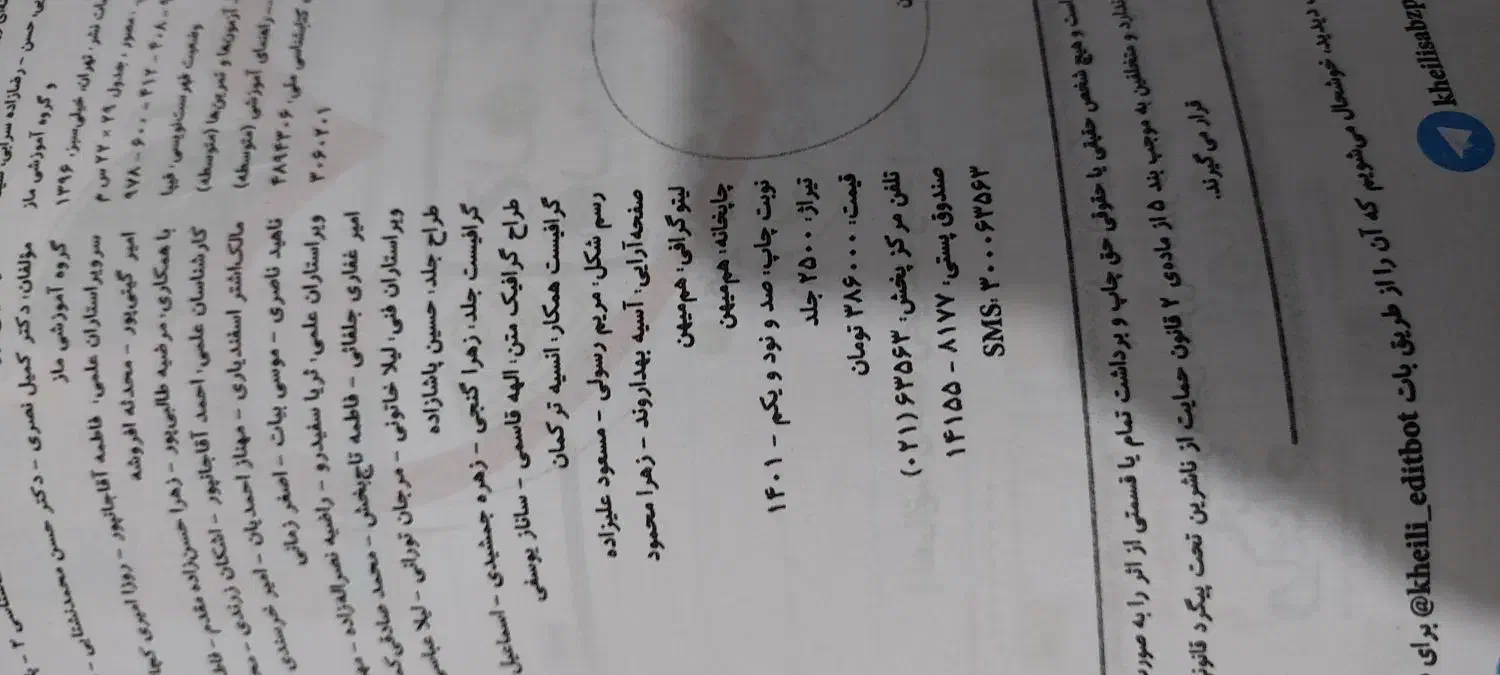 و گروه آموزشی ماز
نشر: تهران، خیلی سبز، ۱۳۹۶
مصور، جدول ۲۹ × ۲۲ س م
۹۷۸ - ۶۰۰ - ۴۱۲ - ۴۰۸ -
وضعیت فهرست‌نویسی: فیپا
- آزمون‌ها و تمرین‌ها (متوسطه)
- راهنمای آموزشی (متوسطه)
کتابشناسی ملی: ۴۸۹۴۳۰۶
۳۰۶۰۲۰۱
مؤلفان: دکتر کمیل نصری - دکتر حسن محمدنشتایی -
گروه آموزشی ماز
سرویراستاران علمی: فاطمه آقاجانپور - روزا امیری
امیر گیتی‌پور - محدثه افروشه
با همکاری: مرضیه طالبی‌پور - زهرا حسن‌زاده مقدم -
کارشناسان علمی: احمد آقاجانپور - اشکان زرندی -
مالک‌اشتر اسفندیاری - مهناز احمدیان - امیر خرسندی
ناهید ناصری - موسی بیات - اصغر زمانی
ویراستاران علمی: ثریا سفیدرو - راضیه نصراله‌زاده -
امیر غفاری جلفائی - فاطمه تاج‌بخش - محمد صادقی
ویراستاران فنی: لیلا خاتونی - مرجان تورانی - لیلا
طراح جلد: حسین پاشازاده
گرافیست جلد: زهرا گنجی - زهره جمشیدی - اسماعیل
طراح گرافیک متن: الهه قاسمی - ساناز یوسفی
گرافیست همکار: انسیه ترکمان
رسم شکل: مریم رسولی - مسعود علیزاده
صفحه‌آرایی: آسیه بهداروند - زهرا محمود
لیتوگرافی: هم‌میهن
چاپخانه: هم‌میهن
نوبت چاپ: صد و نود و یکم - ۱۴۰۱
تیراژ: ۲۵۰۰ جلد
قیمت: ۳۸۶۰۰۰ تومان
تلفن مرکز پخش: ۶۳۵۶۳(۰۲۱)
صندوق پستی: ۸۱۷۷ - ۱۴۱۵۵
SMS: ۳۰۰۰۶۳۵۶۳
است و هیچ شخص حقیقی یا حقوقی حق چاپ و برداشت تمام یا قسمتی از اثر را به صورت
ندارد و متخلفین به موجب بند ۵ از ماده‌ی ۲ قانون حمایت از ناشرین تحت پیگرد قانونی
قرار می‌گیرند.
دیدید، خوشحال می‌شویم که آن را از طریق بات @kheili_editbot برای
kheilisabzp